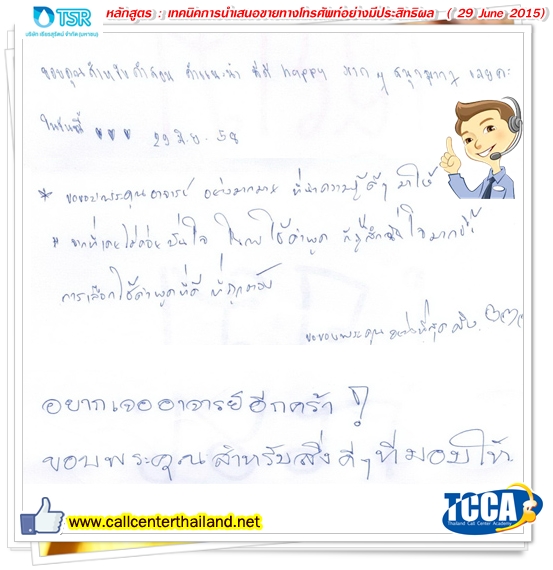 หลักสูตร : เทคนิคการนำเสนอขายทางโทรศัพท์อย่างมีประสิทธิผล ( 29 June 2015)
TSR
บริษัท เธียรสุรัตน์ จำกัด (มหาชน)
ขอบคุณสำหรับคำสอน คำแนะนำ ที่ดี happy มาก ๆ สนุกมากๆ เลยค่ะ
ในวันนี้ ♥♥♥ 29 มิ.ย. 58
* ขอขอบพระคุณ อาจารย์ อย่างมากมาย ที่นำความรู้ดีๆ มาให้
* จากที่เคยไม่ค่อยมั่นใจ ในการใช้คำพูด ก็รู้สึกมั่นใจมากขึ้น
การเลือกใช้คำพูดที่ดี ที่ถูกต้อง
ขอขอบพระคุณ อย่างที่สุดจริง
อยากเจออาจารย์อีกคร้า !
ขอบพระคุณสำหรับสิ่งดีๆที่มอบให้
www.callcenterthailand.net
TCCA
Thailand Call Center Academy